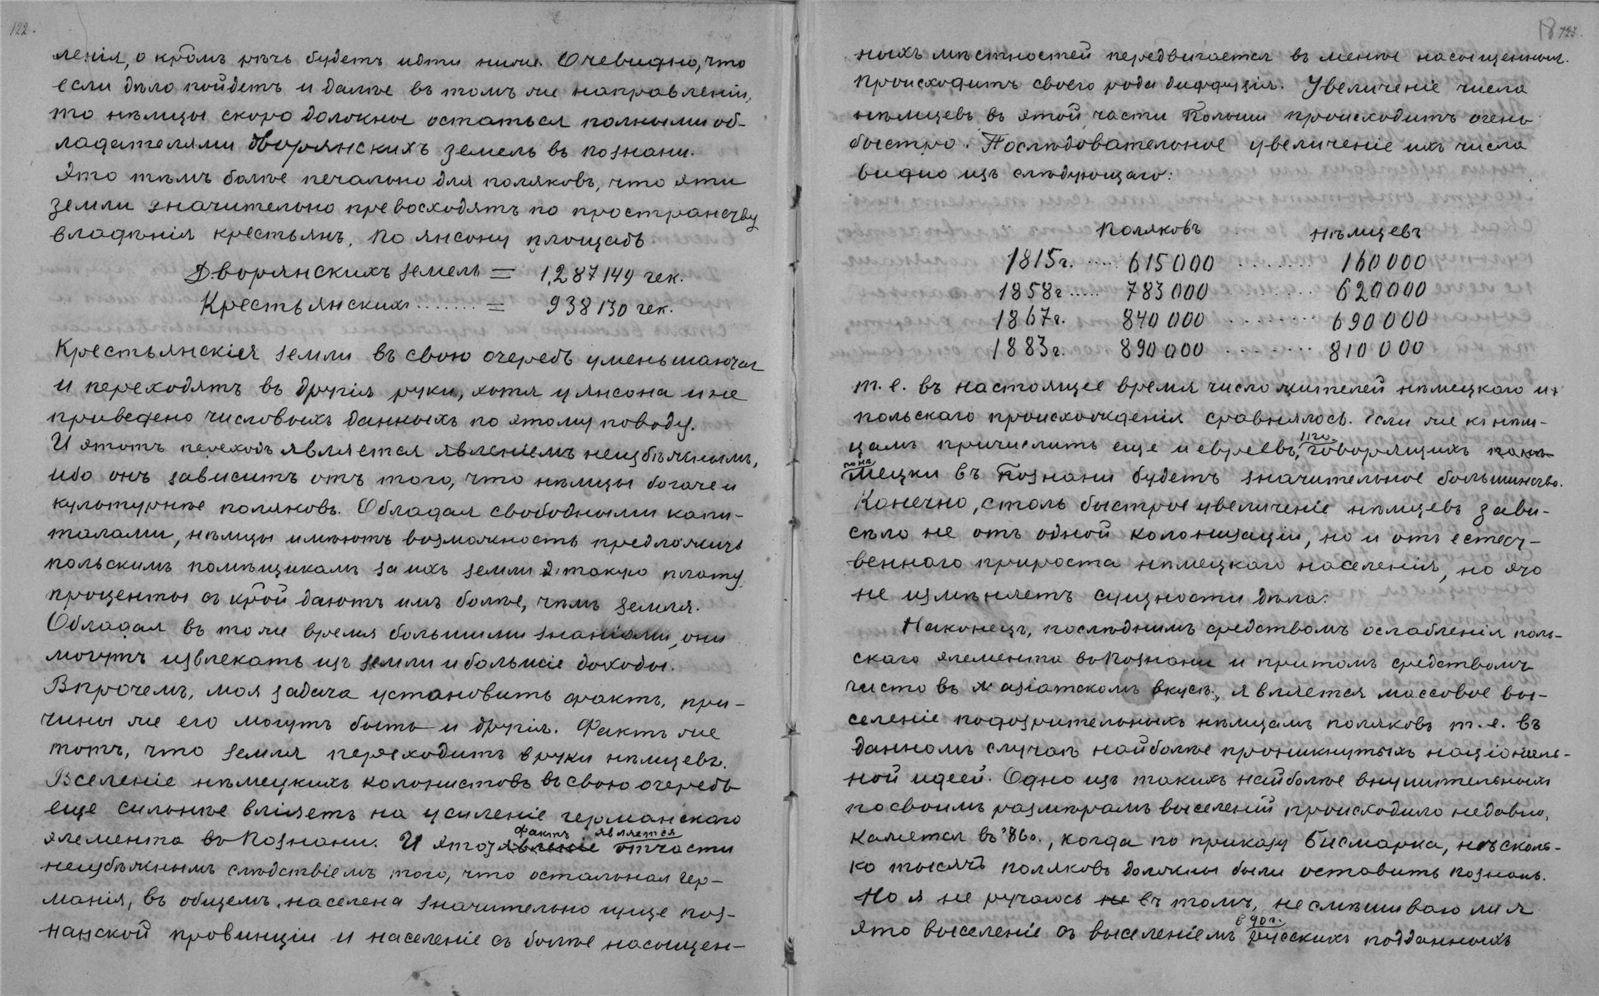 122.
ленія, о кромъ рѣчь будетъ идти ниже. Очевидно, что
если дѣло пойдетъ и далѣе въ томъ же направленіи,
то нѣмцы скоро должны остаться полными об-
ладателями дворянскихъ земель въ Познани.
Это тѣмъ болѣе печально для поляковъ, что эти
земли значительно превосходятъ по пространству
владѣнія крестьянъ. По Янсону площадь
Дворянскихъ земель = 1,287149 гек.
Крестьянскихъ ....... = 938130 гек.
Крестьянскія земли въ свою очередь уменьшаются
и переходятъ въ другія руки, хотя у Янсона и не
приведено числовыхъ данныхъ по этому поводу.
И этотъ переходъ является явленіемъ неизбѣжнымъ,
ибо онъ зависитъ отъ того, что нѣмцы богаче и
культурнѣе поляковъ. Обладая свободными капи-
талами, нѣмцы имѣютъ возможность предложить
польскимъ помѣщикамъ за ихъ земли такую плату,
проценты съ крой даютъ имъ болѣе, чѣмъ земля.
Обладая въ то же время большими знаніями, они
могутъ извлекать изъ земли и большіе доходы.
Впрочемъ, моя задача установить фактъ, при-
чины же его могутъ быть и другія. Фактъ же
тотъ, что земля переходитъ въ руки нѣмцевъ.
Вселеніе нѣмецкихъ колонистовъ въ свою очередь
еще сильнѣе вліяетъ на усиленіе германскаго
элемента въ Познани. И этотъ фактъ является отчасти
неизбѣжнымъ слѣдствіемъ того, что остальная Гер-
манія, въ общемъ, населена значительно гуще поз-
нанской провинціи и населеніе съ болѣе насыщен-
123.
ныхъ мѣстностей передвигается въ менѣе насыщенныя.
Происходитъ своего рода диффузія. Увеличеніе числа
нѣмцевъ въ этой части Польши происходитъ очень
быстро. Послѣдовательное увеличеніе ихъ числа
видно изъ слѣдующаго:
Поляковъ Нѣмцевъ
1815г. ..... 615000 ........ 160000
1858г. ..... 783000 ........ 620000
1867г. 840000 ......... 690000
1883г. 890000 ........ 810000
т. е. въ настоящее время число жителей нѣмецкаго и
польскаго происхожденія сравнялось. Если же къ нѣм-
цамъ причислить еще и евреевъ, говорящихъ
по нѣмецки въ Познани будетъ значительное большинство.
Конечно, столь быстрое увеличеніе нѣмцевъ зави-
сѣло не отъ одной колонизаціи, но и отъ естест-
веннаго прироста нѣмецкаго населенія, но это
не измѣняетъ сущности дѣла.
Наконецъ, послѣднимъ средствомъ ослабленія поль-
скаго элемента въ Познани и притомъ средствомъ
чисто въ азіатскомъ вкусѣ, является массовое вы-
селеніе подозрительныхъ нѣмцамъ поляковъ т. е. въ
данномъ случаѣ наиболѣе проникнутыхъ національ-
ной идеей. Одно изъ такихъ наиболѣе внушительныхъ
по своимъ размѣрамъ выселеній происходило недавно,
кажется въ 86о., когда по приказу Бисмарка, нѣсколь-
ко тысячъ поляковъ должны были оставить Познань.
Но я не ручаюсь въ томъ, не смѣшиваю ли я
это выселеніе съ выселеніемъ русскихъ подданныхъ